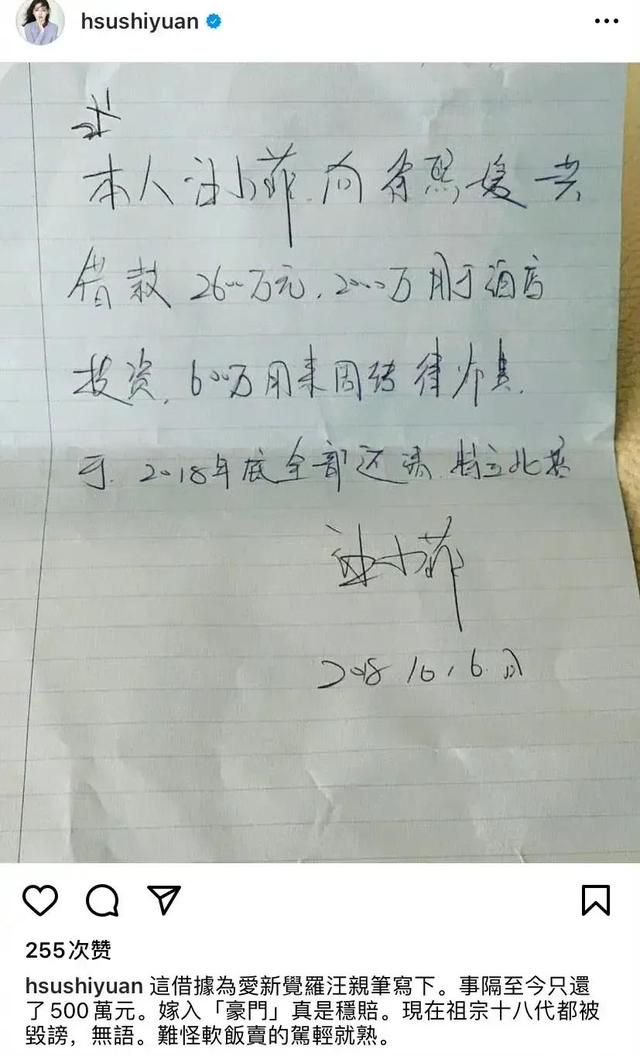 hsushiyuan
本人汪小菲,向徐熙媛共
借款2600万元,2000万用于酒店
投资,600万用来周转律师
于2018年底全部还清.特立此据
汪小菲
2018 10,6日
255次赞
hsushiyuan 這借據為愛新覺羅汪親筆寫下。事隔至今只還
了500萬元。嫁入「豪門」真是穩賠。現在祖宗十八代都被
毀謗，無語。難怪軟飯賣的駕輕就熟。